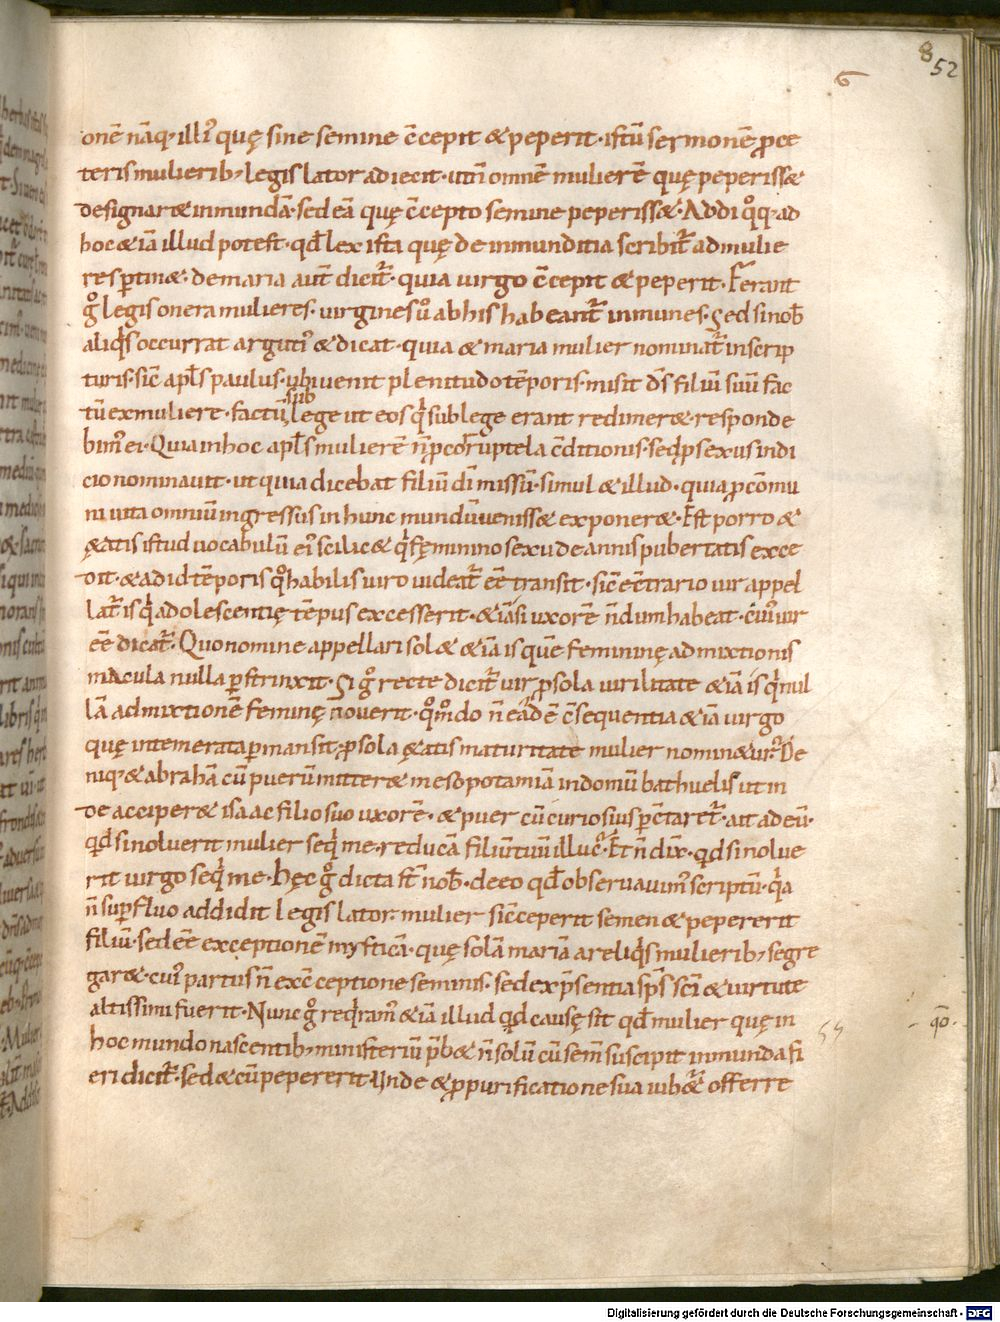 8 52
6
onē nāq; illi᾽ quę sine semine c̄cepit & peperit · istū sermonē p̄ce
teris mulierib; legislator adiecit · utn̄ omnē mulierē quę peperiss&
designar& inmundā · sed eā quę c̄cepto semine peperiss& · Addi q°q; ad
hoc &iā illud potest · qđ lex ista quę de inmunditia scribit᷑ ad mulie
res ptin& · de maria aut̄ dicit᷑ · quia uirgo c̄cepit & peperit · Ferant
g° legis onera mulieres · uirgines u° ab his habeant᷑ inmunes · Sed si nob̄
aliq̇s occurrat arguti᾽ & dicat · quia & maria mulier nominat᷑ in scrip
turis · sic̄ apl̄s paulus · ubi uenit plenitudo tēporis · misit d̄s filiū suū fac
tū ex muliere · factū sub lege ut eos q̇ sub lege erant redimer& · responde
bim᾽ ei · Quia in hoc apl̄s mulierē n̄ p corruptela c̄ditionis · sed p sexus indi
cio nominauit · ut quia dicebat filiū dī missū · simul & illud · quia p cōmu
ni uita omniū ingressus in hunc mundū uenisse exponer& · Est porro &
ę&atis istud uocabulū ei᾽ scilic& q̇ fęminino sexu de annis pubertatis exce
dit · & ad id tēporis q° habilis uiro uideat᷑ ēē transit · sic̄ ec̄trario uir appel
lat᷑ is q̇ adolescentię tēpus excesserit · &iāsi uxorē n̄dum habeat · cui᾽ uir
ēē dicat᷑ · Quo nomine appellari sol& &iā is quē femininę admixtionis
macula nulla pstrinxit · Si g° recte dicit᷑ uir p sola uirilitate &iā is q̇ nul
lā admixtionē feminę nouerit · q°m°do n̄ eādē c̄sequentia &iā uirgo
quę intemerata pmansit · p sola ę&atis maturitate mulier nomin&ur᷑ · De
niq; & abrahā cū puerū mitter& mesopotamiā in domū bathuelis ut in
de acciper& isaac filio suo uxorē · & puer cū curiosius pc̄taret᷑ · ait ad eū ·
qđ si noluerit mulier seq̇ me · reducā filiū tuū illuc᾽ · Et n̄ dix̄ · qđ si nolue
rit uirgo seq̇ me · hęc g° dicta st̄ nob̄ · de eo qđ obseruauim᾽ scriptū · q̇a
n̄ supfluo addidit legislator mulier si c̄ceperit semen & pepererit
filiū · sed ēē exceptionē mysticā · quę solā mariā a reliq̇s mulierib; segre
gar& · cui᾽ partus n̄ ex c̄ceptione seminis · sed ex p̄sentia sp̄s sc̄i & uirtute
altissimi fuerit · Nunc g° req̇ram᾽ &iā illud qđ causę sit qđ mulier quę in
hoc mundo nascentib; ministeriū p̄b& n̄ solū cū sem̄ suscipit inmunda fi
eri dicit᷑ · sed & cū pepererit Unde & p purificatione sua iub&᷑ offerre
- q̄o ·
Digitalisierung gefördert durch die Deutsche Forschungsgemeinschaft - DFG